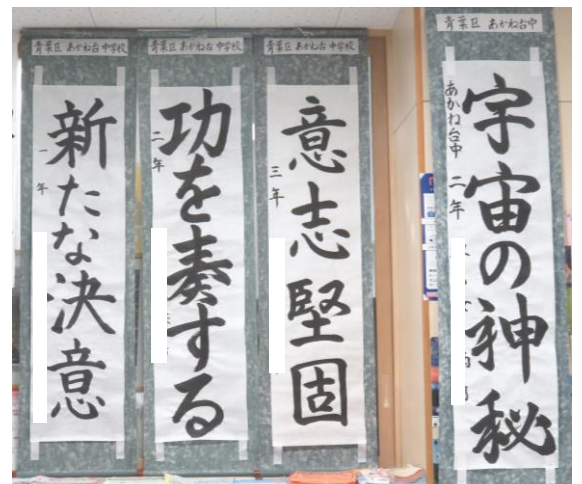 青葉区 あかね台中学校
新たな決意
一年
青葉区 あかね台中学校
功を奏する
二年
青葉区 あかね台中学校
意志堅固
三年
青葉区 あかね台中
宇宙の神秘
あかね台中 二年